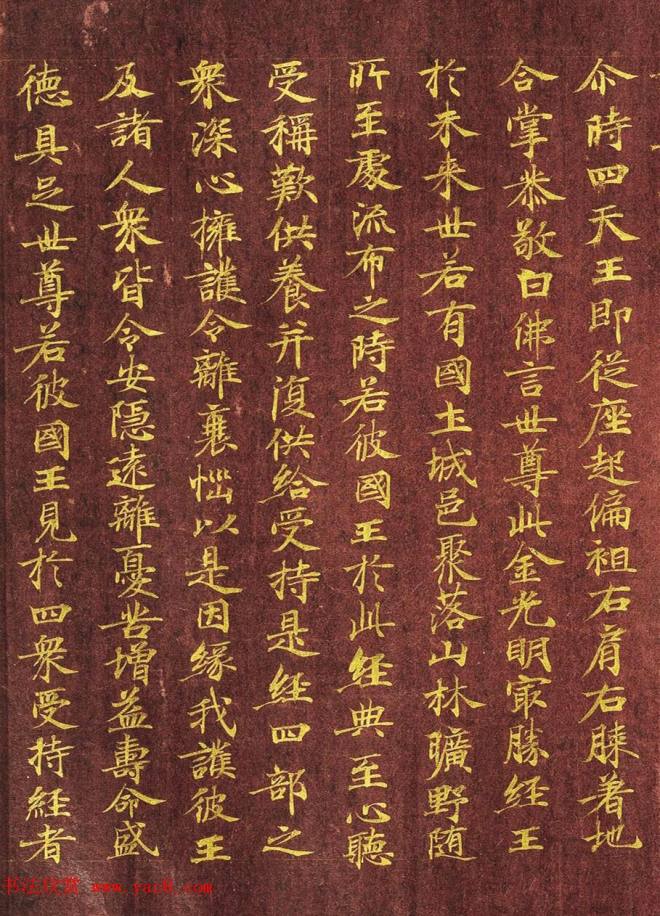 尒時四天王即從座起偏袒右肩右膝著地
合掌恭敬白佛言世尊此金光明冣勝經王
於未来世若有國土城邑聚落山林曠野随
所至處流布之時若彼國王於此經典至心聽
受稱歎供養并復供給受持是經四部之
衆深心擁護令離衰惱以是因緣我護彼王
及諸人衆皆令安隱遠離憂苦增益壽命盛
德具足世尊若彼國王見於四衆受持經者
书法欣赏 www.yac8.com